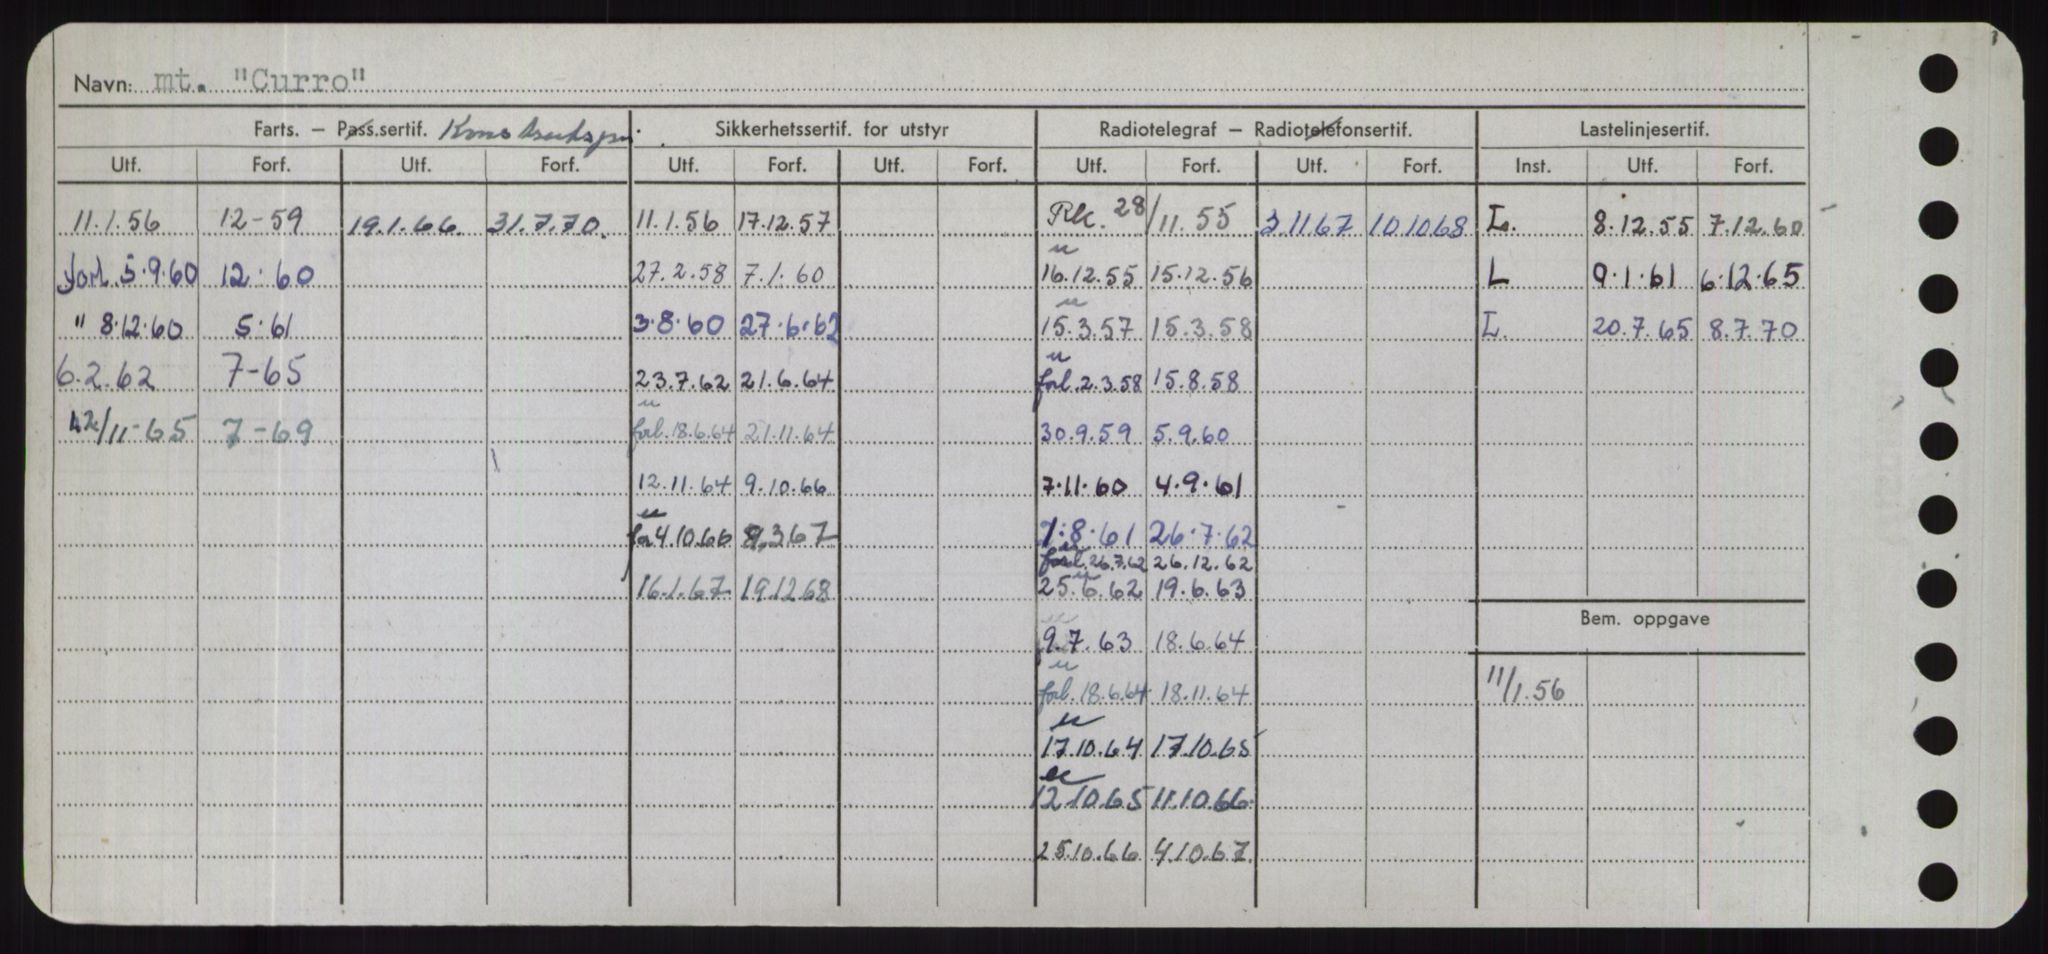 Navn: mt. "Curro"
Farts. – Pass.sertif. Sikkerhetssertif. for utstyr Radiotelegraf – Radiotelefonsertif. Lastelinjesertif.
Utf. Forf. Utf. Forf. Utf. Forf. Utf. Forf. Utf. Forf. Utf. Forf. Inst. Utf. Forf.
11.1.56 12-59 19.1.66. 31.7.70. 11.1.56 17.12.57 Rk. 28/11.55 3.11 67 10 10 68 L. 8.12.55 7.12.60
forl. 5.9.60 12.60 27.2.58 7.1.60 " 16.12.55 15.12.56 L 9.1.61 6.12.65
" 8.12.60 5.61 3.8.60 27.6.62 " 15.3.57 15.3.58 L. 20.7.65 8.7.70
6.2.62 7-65 23.7.62 21.6.64 " forl. 2.3.58 15.8.58
/11-65 7-69 " forl. 18.6.64 21.11.64 30.9.59 5.9.60
12.11.64 9.10.66 7.11.60 4.9.61
" 4.10.66 9.3 67 1.8.61 26.7.62
forl. 26.7.62 26.12.62
16.1.67 19.12 68 25.6.62 19.6.63
Bem. oppgave
" 9.7.63 18.6.64
" forl. 18.6.64 18.11.64 11/1.56
" 17.10.64 17.10.65
" 12.10.65 11.10.66
25.10.66 4.10.67